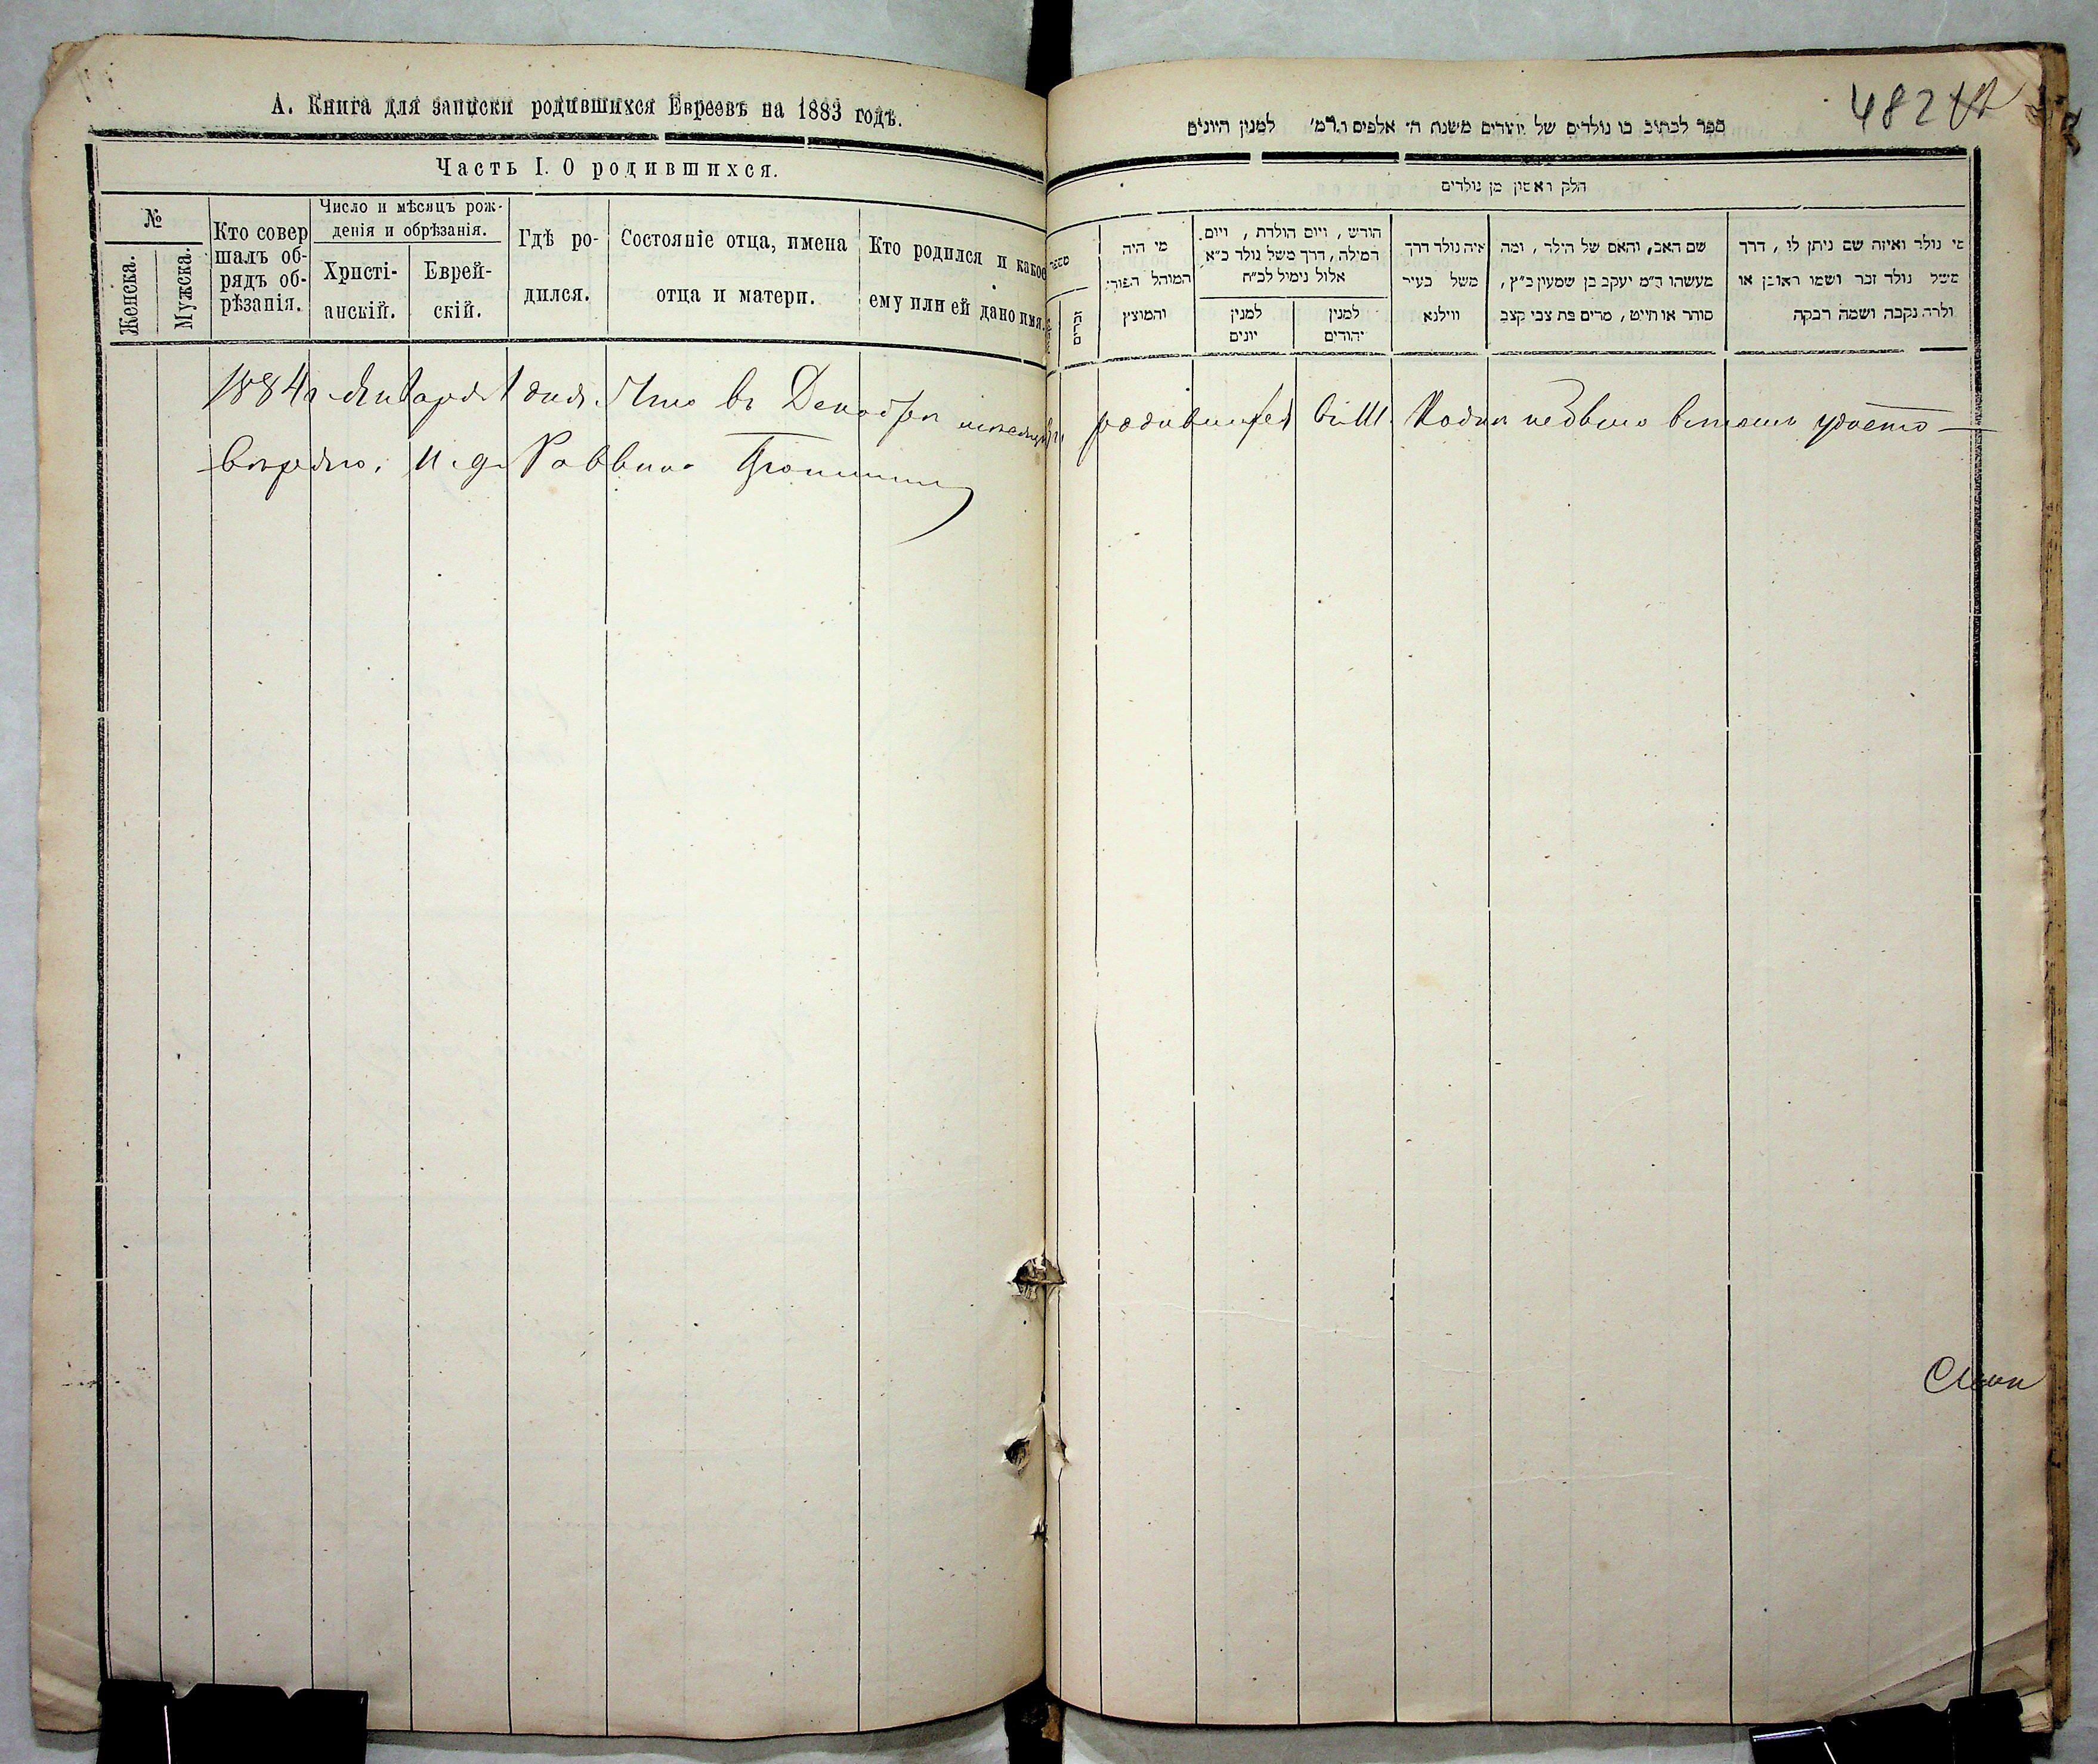 А. Книга для записки родившихся Евреевъ на 1883 годъ.
Часть I. О родившихся.
№
Женска.
Мужска.
Кто совер
шалъ об-
рядъ об-
рѣзанія.
Число и мѣсяцъ рож-
денія и обрѣзанія.
Христі-
анскій.
Еврей-
скій.
Гдѣ ро-
дился.
Состояніе отца, имена
отца и матери.
Кто родился и какое
ему или ей дано имя.
1884 г. Января 1 дня. Что въ Декабрѣ мѣсяцѣ
вѣряю. И. д. Раввина
482
ספר לכתוב בו נולדים של יהודים משנת ה׳ אלפים ו.רמ׳ למנין היונים
חלק ראשון מן נולדים
מספר
זכרים
מי היה
המוהל הפורי:
והמוצץ
חורש, ויום הולדת, ויום
המילה, דרך משל נולד כ״א
אלול נימול לכ״ח
למנין
יונים
למנין
יהודים
איה נולד דרך
משל בעיר
ווילנא
שם האב, והאם של הילד, ומה
מעשהו ר״מ יעקב בן שמעון כ״ץ,
סוחר או חייט, מרים בת צבי קצב
מי נולד ואיזה שם ניתן לו, דרך
משל נולד זכר ושמו ראובן או
נולדה נקבה ושמה רבקה
родившихся въ М. Кодня не было в томъ удосто-